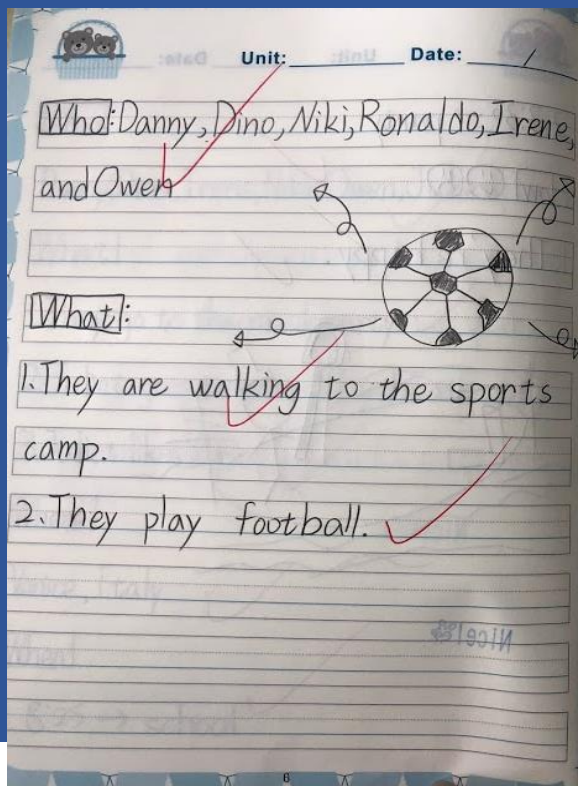 Unit: Date: /
Who: Danny, Dino, Niki, Ronaldo, Irene,
and Owen
What:
1. They are walking to the sports
camp.
2. They play football.
Nice!
6